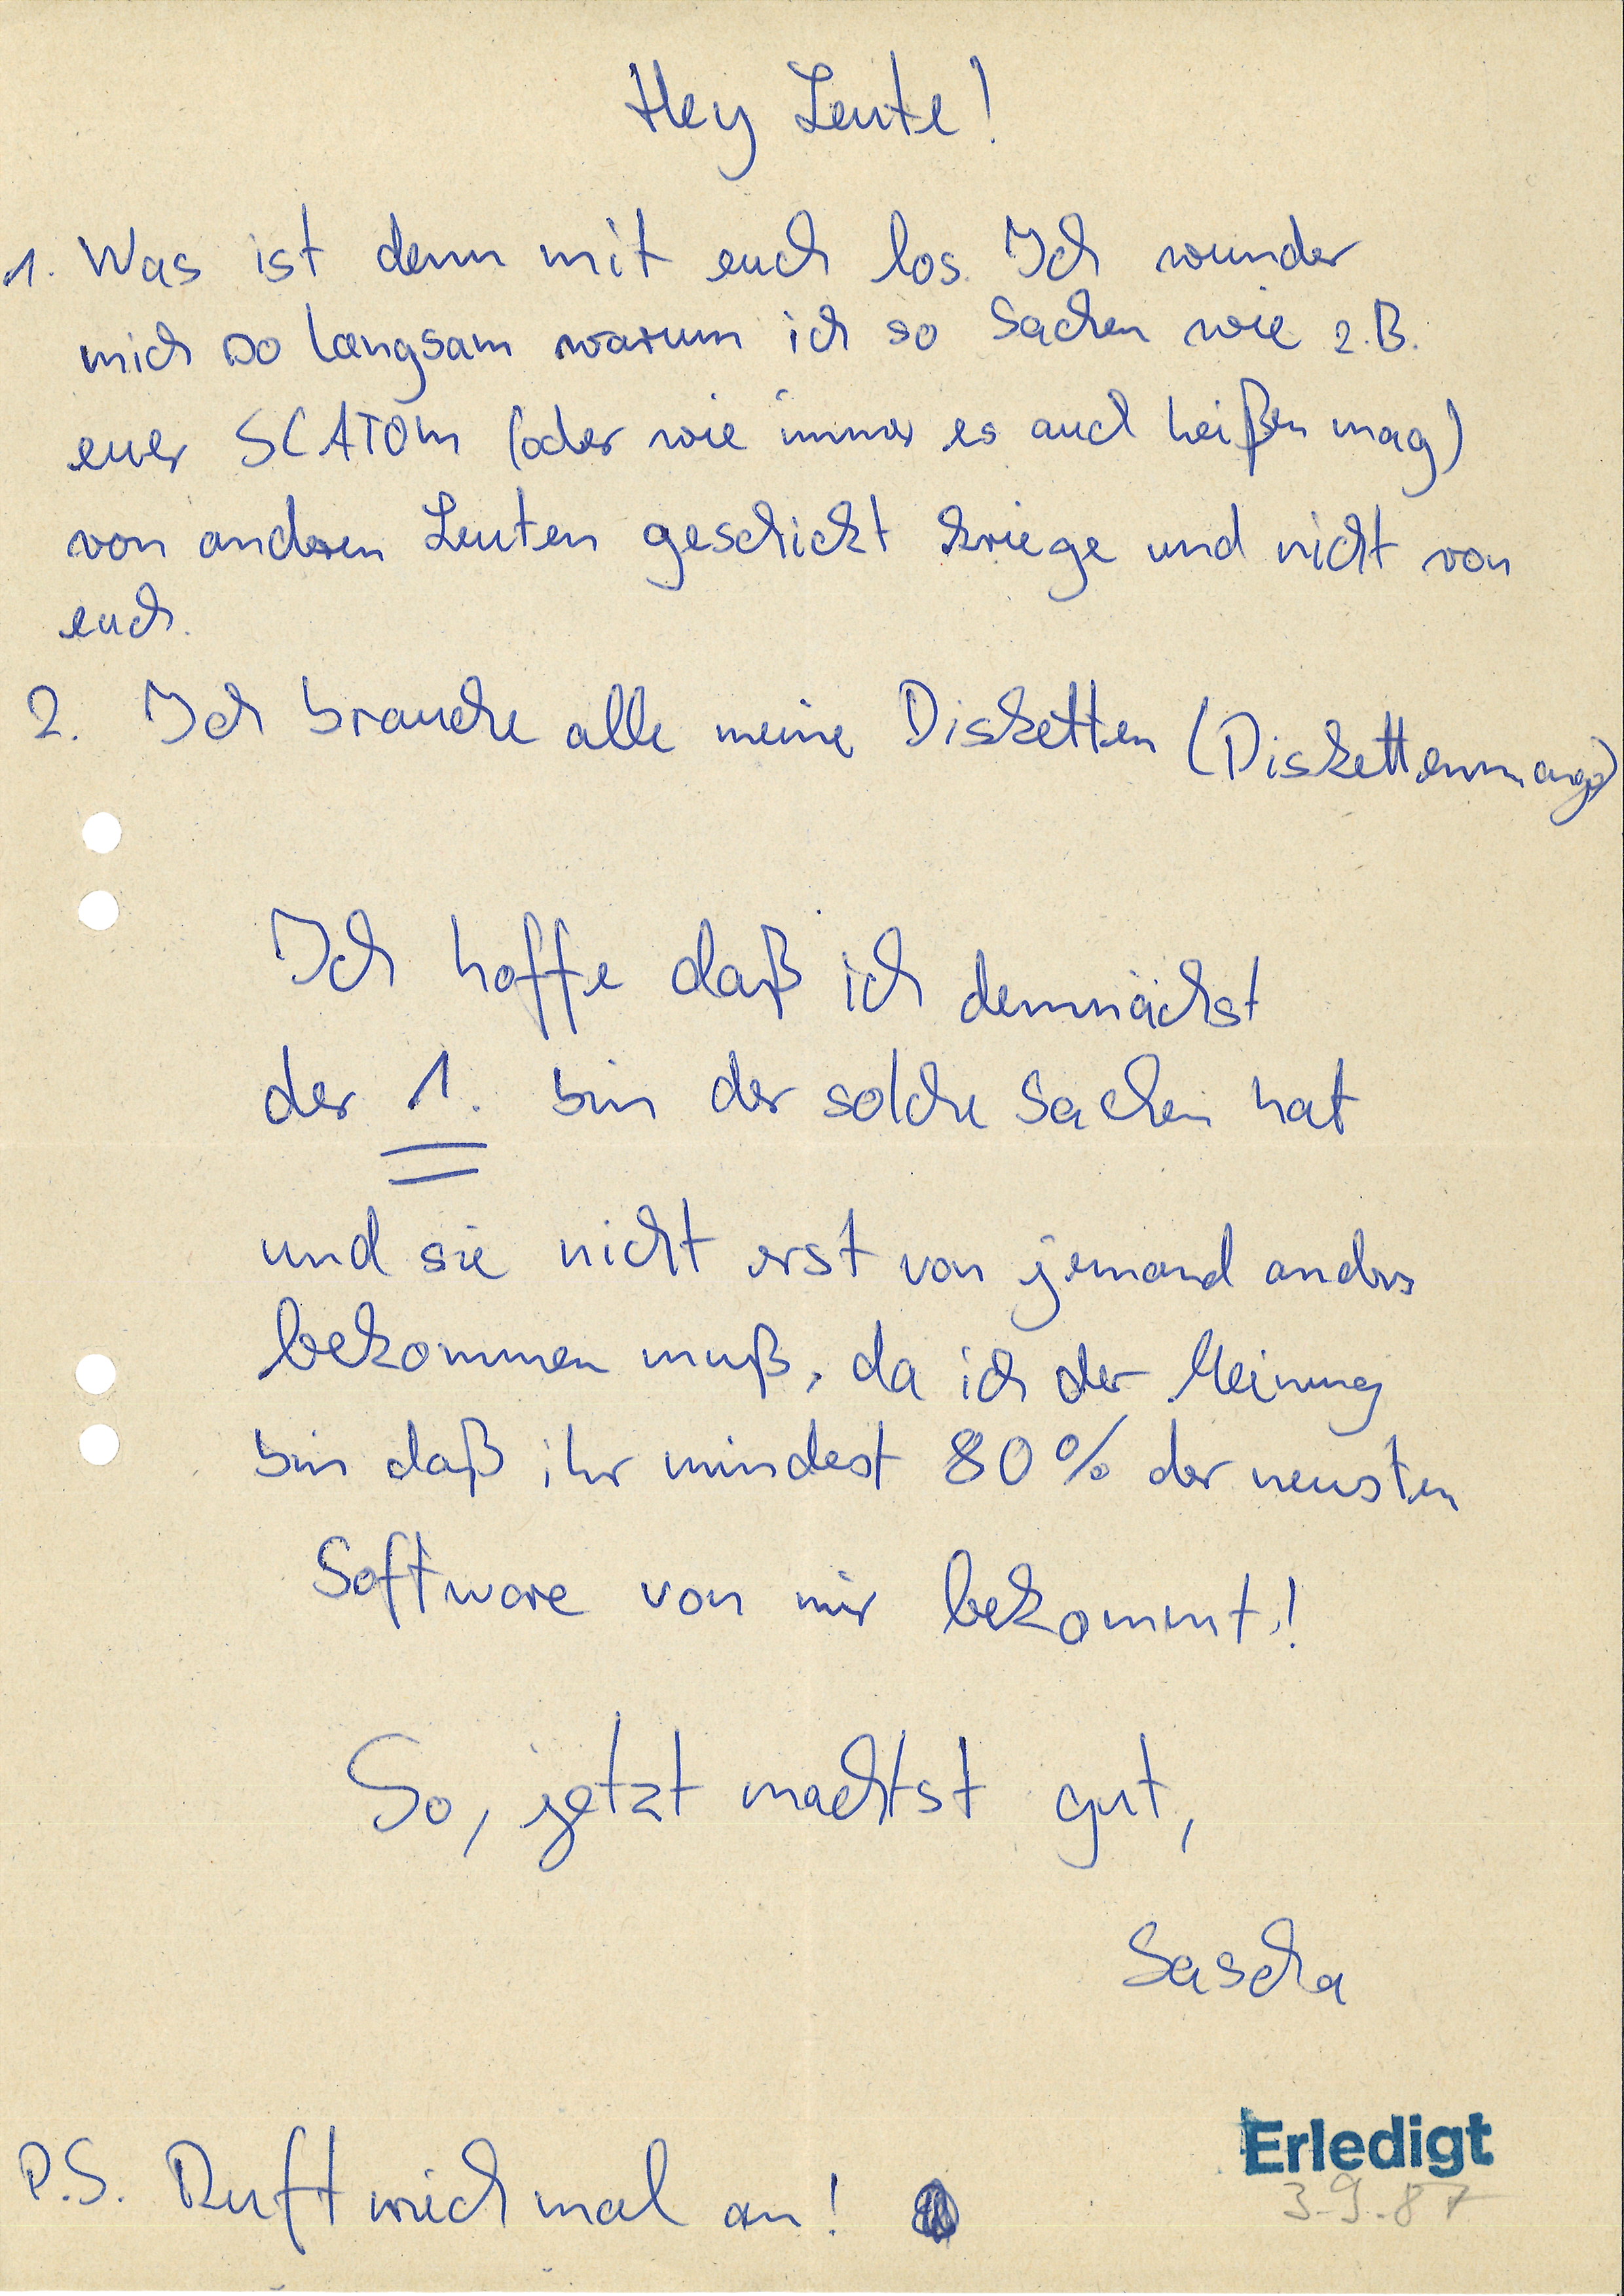 Hey Leute!
1. Was ist denn mit euch los. Ich wunder
mich so langsam warum ich so Sachen wie z.B.
euer SCATOM (oder wie immer es auch heißen mag)
von anderen Leuten geschickt kriege und nicht von
euch.
2. Ich brauche alle meine Disketten (Diskettenmangel)
Ich hoffe daß ich demnächst
der 1. bin der solche Sachen hat
und sie nicht erst von jemand anders
bekommen muß, da ich der Meinung
bin daß ihr mindest 80% der neusten
Software von mir bekommt!
So, jetzt machtst gut,
Sascha
Erledigt
3.9.87
P.S. Ruft mich mal an!